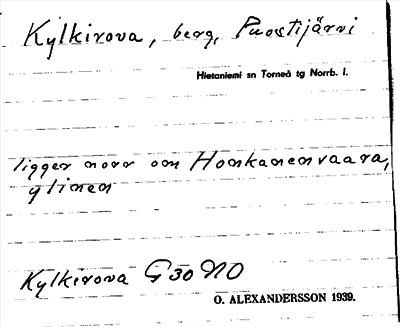 Kylkirova, berg, Puostijärvi
Hietaniemi sn Torneå tg Norrb. l.
ligger norr om Honkanenvaara,
ylinen
Kylkirova G 30 NO
O. ALEXANDERSSON 1939.